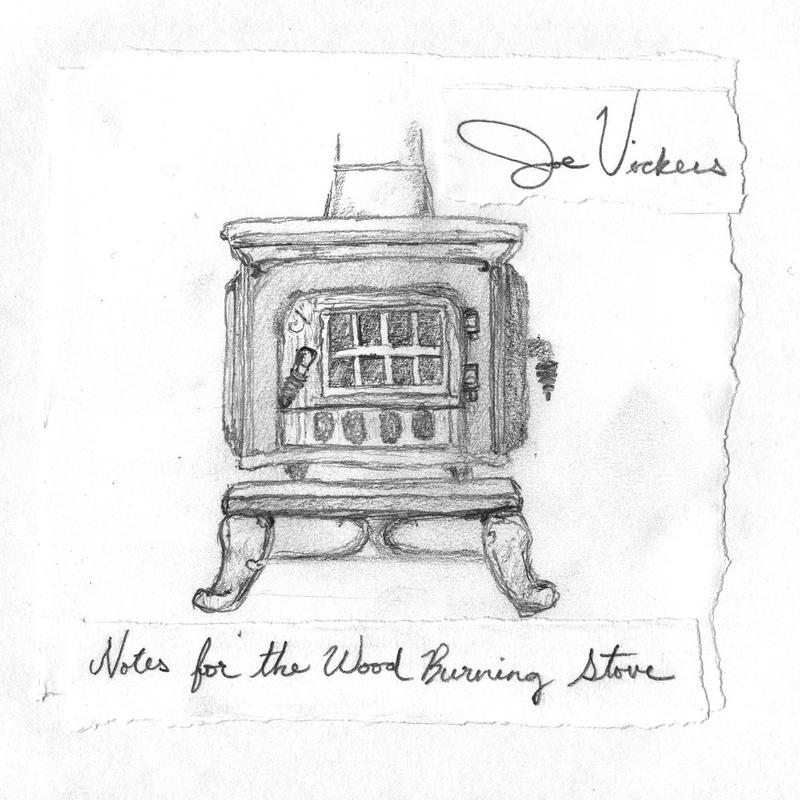 Joe Vickers
Notes for the Wood Burning Stove